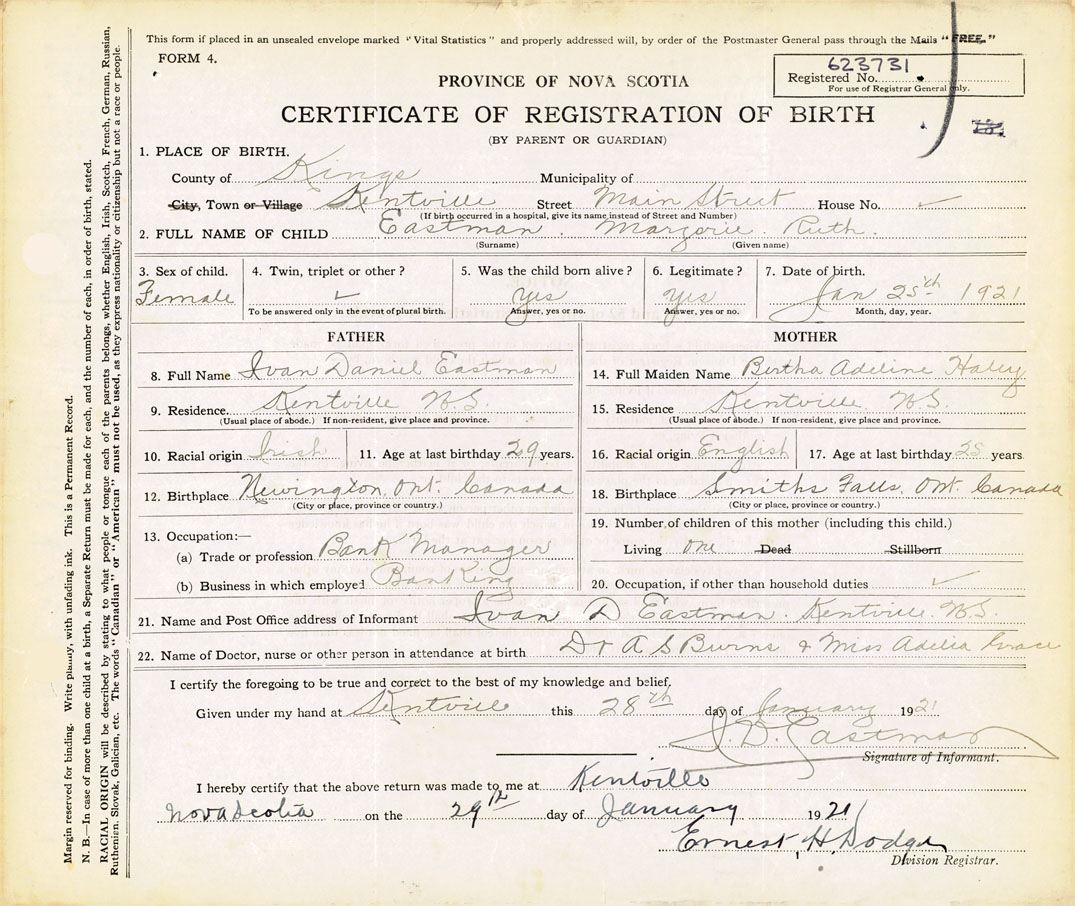 This form if placed in an unsealed envelope marked "Vital Statistics" and properly addressed will, by order of the Postmaster General pass through the Mails "FREE."
FORM 4.
623731
Registered No.
For use of Registrar General only.
PROVINCE OF NOVA SCOTIA
CERTIFICATE OF REGISTRATION OF BIRTH
(BY PARENT OR GUARDIAN)
1. PLACE OF BIRTH.
County of Kings Municipality of
City, Town or Village Kentville Street Main Street House No. ✓
(If birth occurred in a hospital, give its name instead of Street and Number)
2. FULL NAME OF CHILD Eastman. Marjorie Ruth.
(Surname) (Given name)
3. Sex of child. 4. Twin, triplet or other? 5. Was the child born alive? 6. Legitimate? 7. Date of birth.
Female ✓ yes yes Jan 25th 1921
To be answered only in the event of plural birth. Answer, yes or no. Answer, yes or no. Month, day, year.
FATHER MOTHER
8. Full Name Ivan Daniel Eastman 14. Full Maiden Name Bertha Adeline Haley
9. Residence. Kentville N.S. 15. Residence Kentville, N.S.
(Usual place of abode.) If non-resident, give place and province. (Usual place of abode.) If non-resident, give place and province.
10. Racial origin Irish 11. Age at last birthday 29 years. 16. Racial origin English 17. Age at last birthday 25 years
12. Birthplace Newington, Ont. Canada 18. Birthplace Smiths Falls, Ont Canada
(City or place, province or country.) (City or place, province or country.)
13. Occupation:— 19. Number of children of this mother (including this child.)
(a) Trade or profession Bank Manager Living one Dead Stillborn
(b) Business in which employed Banking 20. Occupation, if other than household duties ✓
21. Name and Post Office address of Informant Ivan D Eastman. Kentville N.S.
22. Name of Doctor, nurse or other person in attendance at birth Dr A S Burns & Miss Adelia Grace
I certify the foregoing to be true and correct to the best of my knowledge and belief.
Given under my hand at Kentville this 28th day of January 1921
I. D. Eastman
Signature of Informant.
I hereby certify that the above return was made to me at Kentville
Nova Scotia on the 29th day of January 1921
Ernest H. Dodge
Division Registrar.
Margin reserved for binding. Write plainly, with unfading ink. This is a Permanent Record.
N. B.—In case of more than one child at a birth, a Separate Return must be made for each, and the number of each, in order of birth, stated.
RACIAL ORIGIN will be described by stating to what people or tongue each of the parents belongs, whether English, Irish, Scotch, French, German, Russian,
Ruthenian, Slovak, Galician, etc. The words "Canadian" or "American" must not be used, as they express nationality or citizenship but not a race or people.